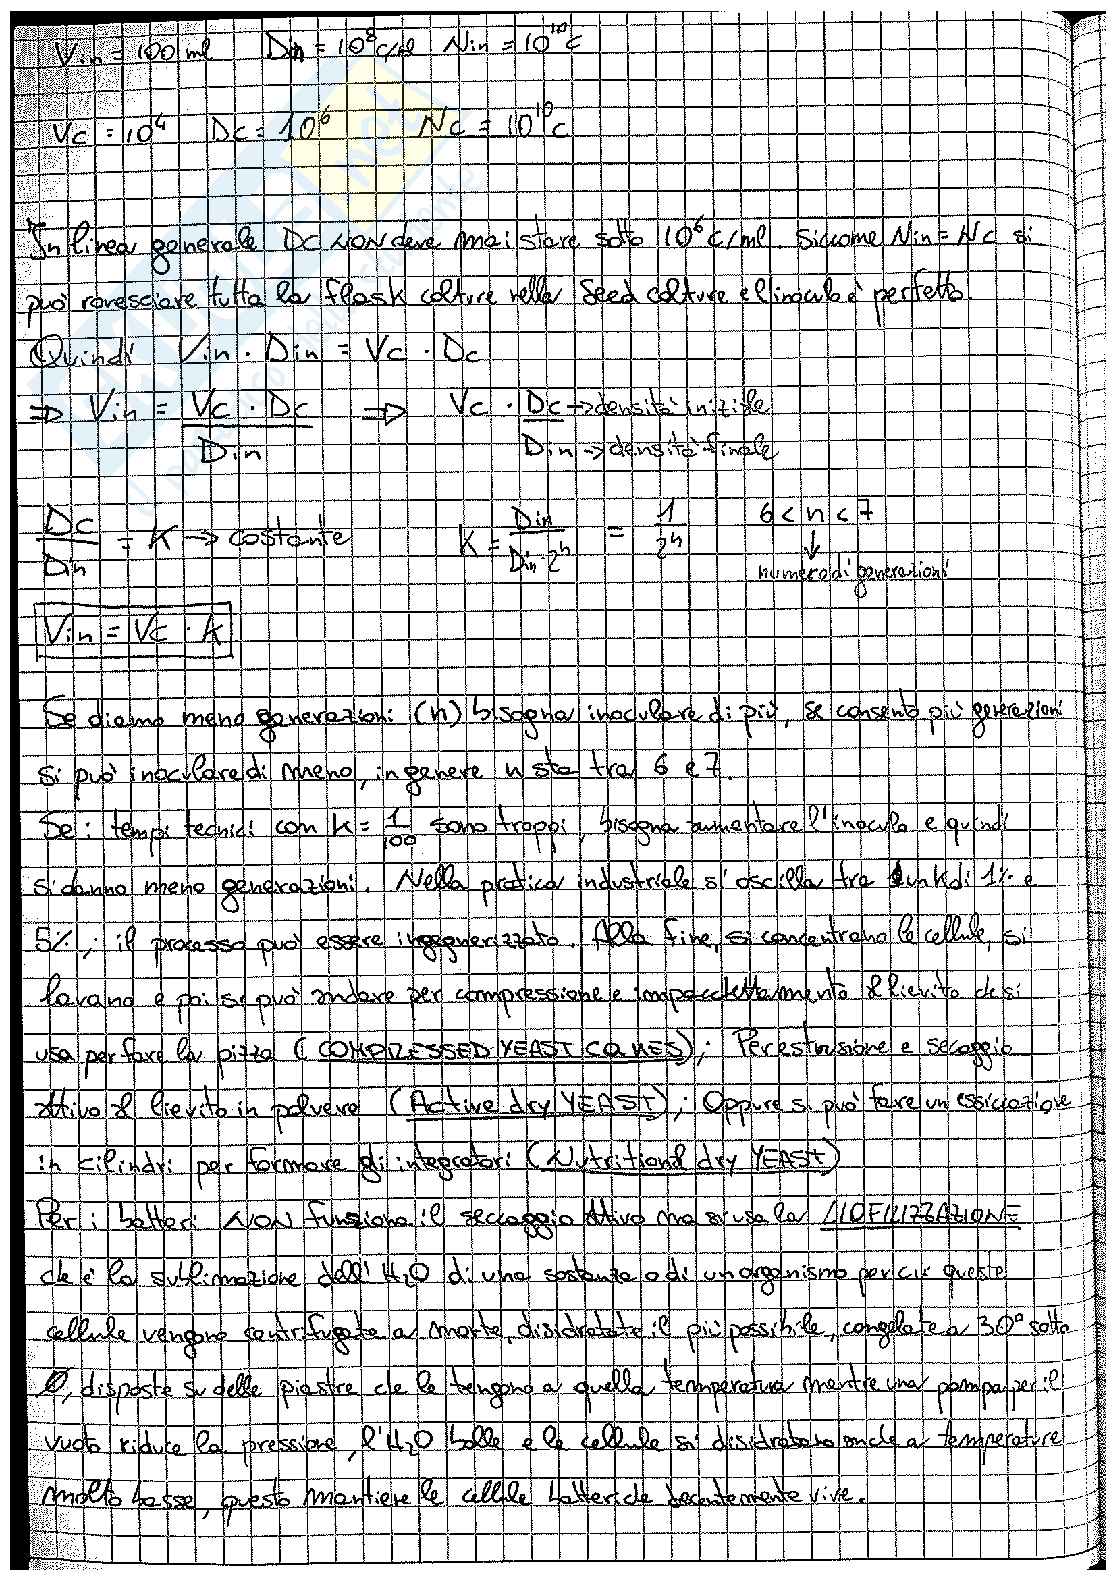 Vin = 100 ml Din = 10⁸ c/ml Nin = 10¹⁰ c
Vc = 10⁴ Dc = 10⁶ Nc = 10¹⁰ c
In linea generale Dc NON deve mai stare sotto 10⁶ c/ml. Siccome Nin = Nc si
può rovesciare tutta la flask colture nella Seed colture e l'inoculo è perfetto.
Quindi Vin · Din = Vc · Dc
⇒ Vin = Vc · Dc / Din ⇒ Vc · Dc → densità iniziale / Din → densità finale
Dc / Din = K → costante K = Din / Din · 2ⁿ = 1 / 2ⁿ 6 < n < 7
↓
numero di generazioni
Vin = Vc · K
Se diamo meno generazioni (n) bisogna inoculare di più, se consento più generazioni
si può inoculare di meno, in genere n sta tra 6 e 7.
Se i tempi tecnici con K = 1/100 sono troppi, bisogna aumentare l'inoculo e quindi
si danno meno generazioni. Nella pratica industriale si oscilla tra un K di 1% e
5%; il processo può essere ingegnerizzato. Alla fine, si concentrano le cellule, si
lavano e poi si può andare per compressione e impacchettamento al lievito che si
usa per fare la pizza (COMPRESSED YEAST CAKES); Per estrusione e seccaggio
attivo al lievito in polvere (Active dry YEAST); Oppure si può fare un essiccazione
in cilindri per formare gli integratori (Nutritional dry YEAST)
Per i batteri NON funziona il seccaggio attivo ma si usa la LIOFILIZZAZIONE
che è la sublimazione dell'H₂O di una sostanza o di un organismo per cui queste
cellule vengono centrifugate a morte, disidratate il più possibile, congelate a 30° sotto
0, disposte su delle piastre che le tengono a quella temperatura mentre una pompa per il
vuoto riduce la pressione, l'H₂O bolle e le cellule si disidratano anche a temperature
molto basse, questo mantiene le cellule batteriche decentemente vive.